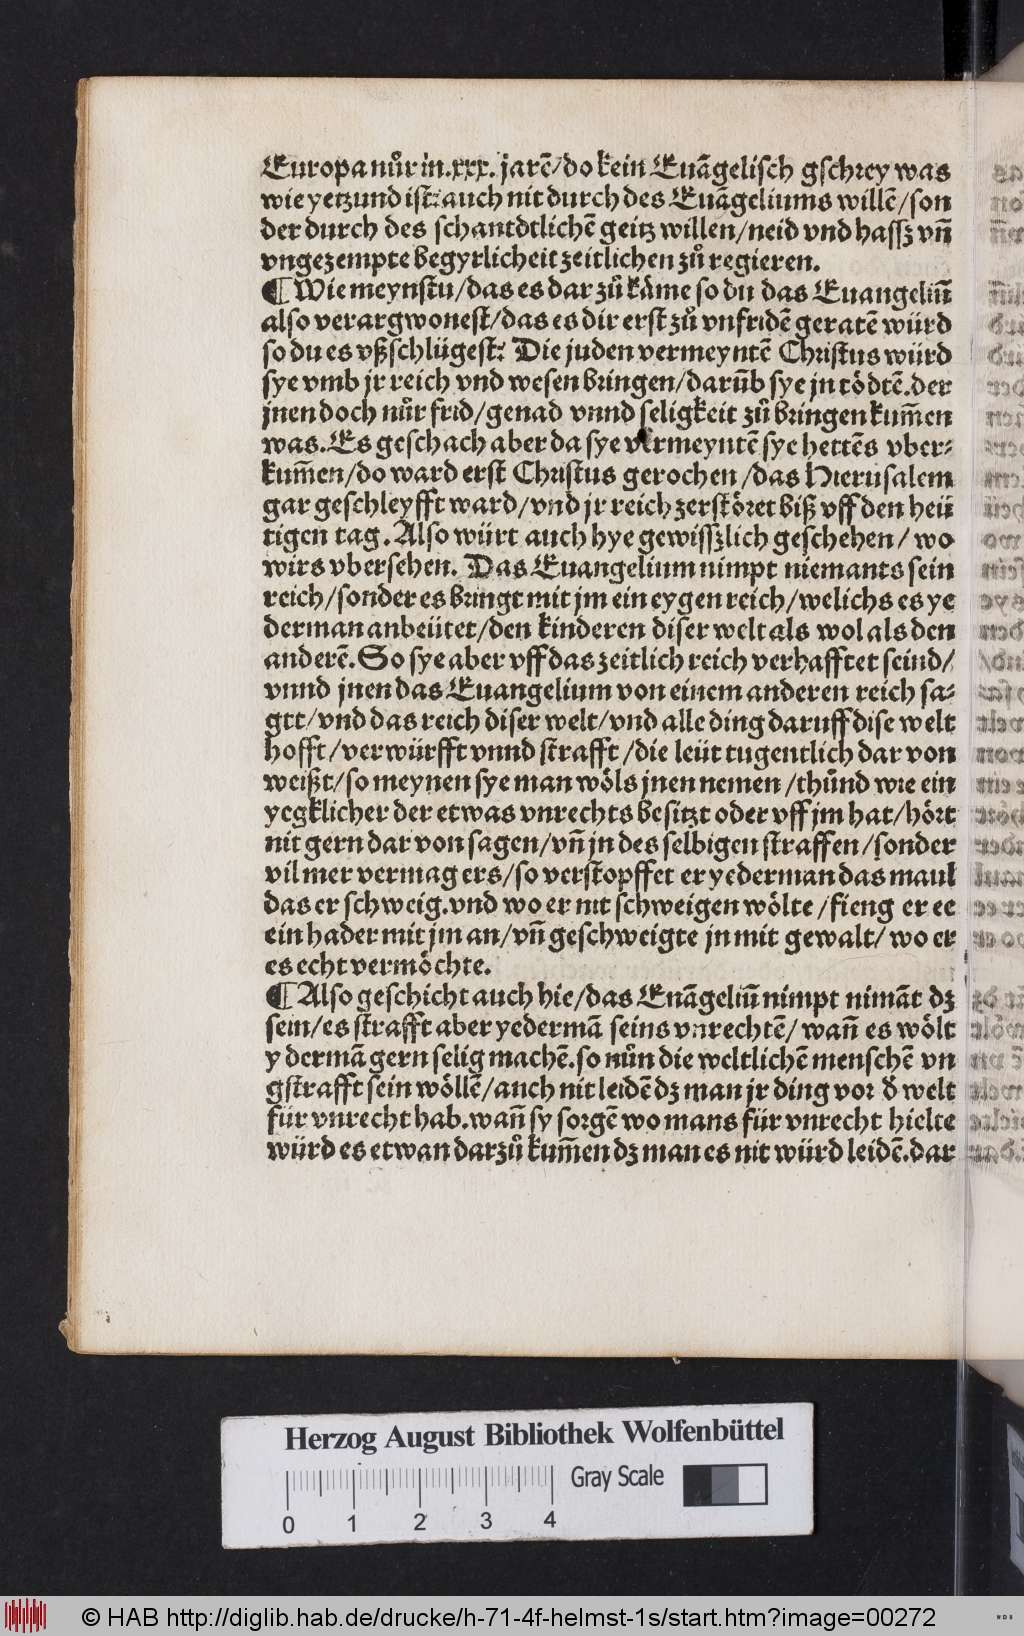 Europa nůr in.xxx. jarē/do kein Euāgelisch gschrey was
wie yetzund ist: auch nit durch des Euāgeliums willē/son
der durch des schantdtlichē geitz willen/neid vnd hassz vn̄
vngezempte begyrlicheit zeitlichen zů regieren.
¶ Wie meynstu/das es dar zů käme so du das Euangeliū
also verargwonest/das es dir erst zů vnfridē geratē würd
so du es vßschlügest: Die juden vermeyntē Christus würd
sye vmb jr reich vnd wesen bringen/darūb sye jn tödtē.der
jnen doch nůr frid/genad vnnd seligkeit zů bringen kum̄en
was.Es geschach aber da sye vermeyntē sye hettēs vber⸗
kum̄en/do ward erst Christus gerochen/das Hierusalem
gar geschleyfft ward/vnd jr reich zerstöret biß vff den heü
tigen tag. Also würt auch hye gewisszlich geschehen/ wo
wirs vbersehen. Das Euangelium nimpt niemants sein
reich/sonder es bringt mit jm ein eygen reich/welichs es ye
derman anbeütet/den kinderen diser welt als wol als den
anderē. So sye aber vff das zeitlich reich verhafftet seind/
vnnd jnen das Euangelium von einem anderen reich sa⸗
gtt/vnd das reich diser welt/vnd alle ding daruff dise welt
hofft/verwürfft vnnd strafft/die leüt tugentlich dar von
weißt/so meynen sye man wöls jnen nemen/thůnd wie ein
yegklicher der etwas vnrechts besitzt oder vff jm hat/hört
nit gern dar von sagen/vn̄ jn des selbigen straffen/sonder
vil mer vermag ers/so verstopffet er yederman das maul
das er schweig.vnd wo er nit schweigen wölte/fieng er ee
ein hader mit jm an/vn̄ geschweigte jn mit gewalt/ wo er
es echt vermöchte.
¶ Also geschicht auch hie/das Euāgeliū nimpt nimāt dz
sein/es strafft aber yedermā seins vnrechtē/ wan̄ es wölt
y dermā gern selig machē.so nůn die weltlichē menschē vn
gstrafft sein wöllē/auch nit leidē dz man jr ding vor d̄ welt
für vnrecht hab.wan̄ sy sorgē wo mans für vnrecht hielte
würd es etwan darzů kum̄en dz man es nit würd leidē.dar
Herzog August Bibliothek Wolfenbüttel
Gray Scale
0 1 2 3 4
© HAB http://diglib.hab.de/drucke/h-71-4f-helmst-1s/start.htm?image=00272